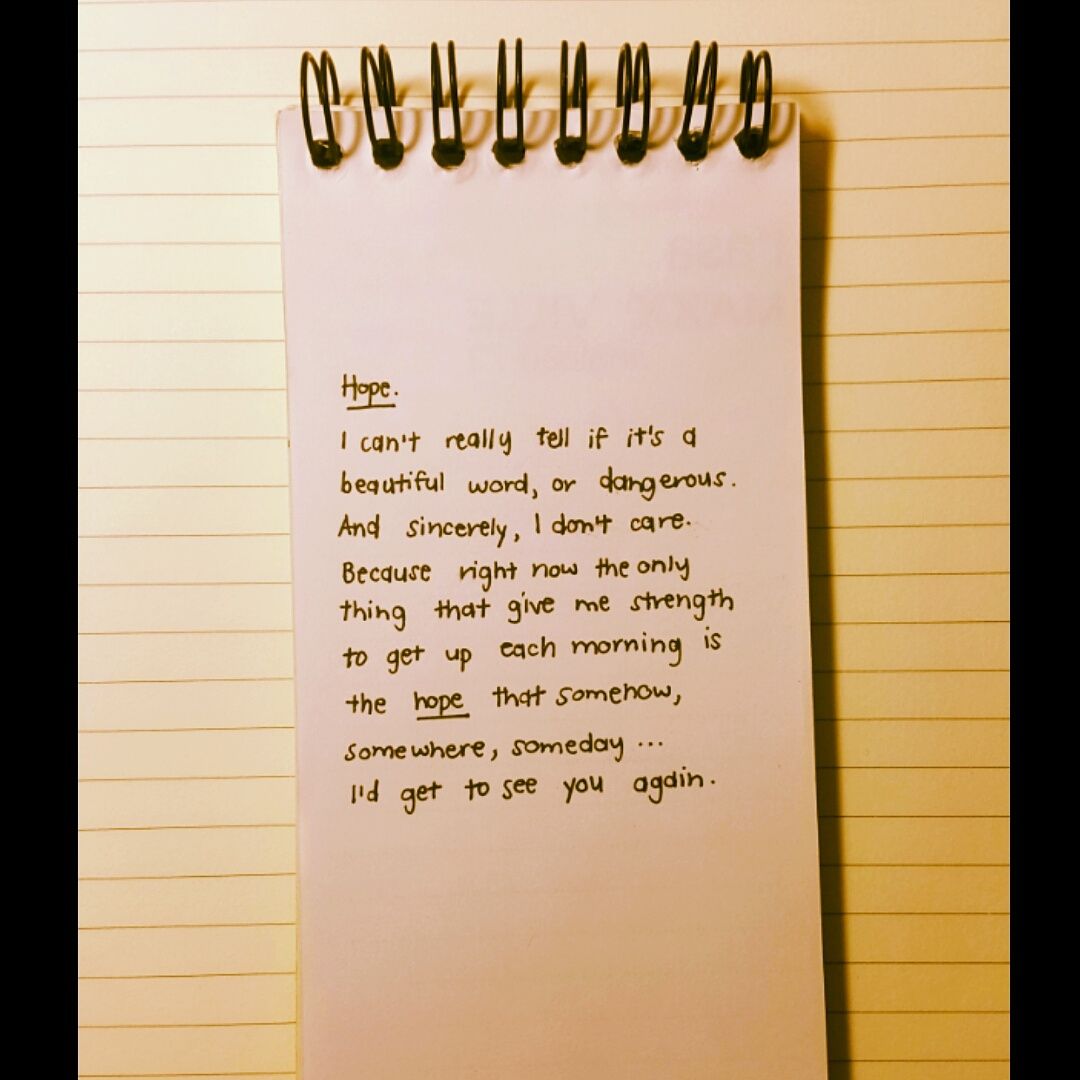 Hope.
I can't really tell if it's a
beautiful word, or dangerous.
And sincerely, I don't care.
Because right now the only
thing that give me strength
to get up each morning is
the hope that somehow,
somewhere, someday ...
I'd get to see you again.